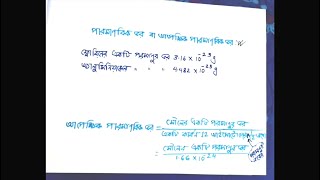 পারমাণবিক ভর বা আপেক্ষিক পারমাণবিক ভর
ফ্লোরিনের একটি পরমাণুর ভর 3.16 × 10⁻²³ g
অ্যালুমিনিয়ামের " " " 4.482 × 10⁻²³ g
আপেক্ষিক পারমাণবিক ভর = মৌলের একটি পরমাণুর ভর
একটি কার্বন 12
= মৌলের একটি পরমাণুর ভর
1.66 × 10⁻²⁴